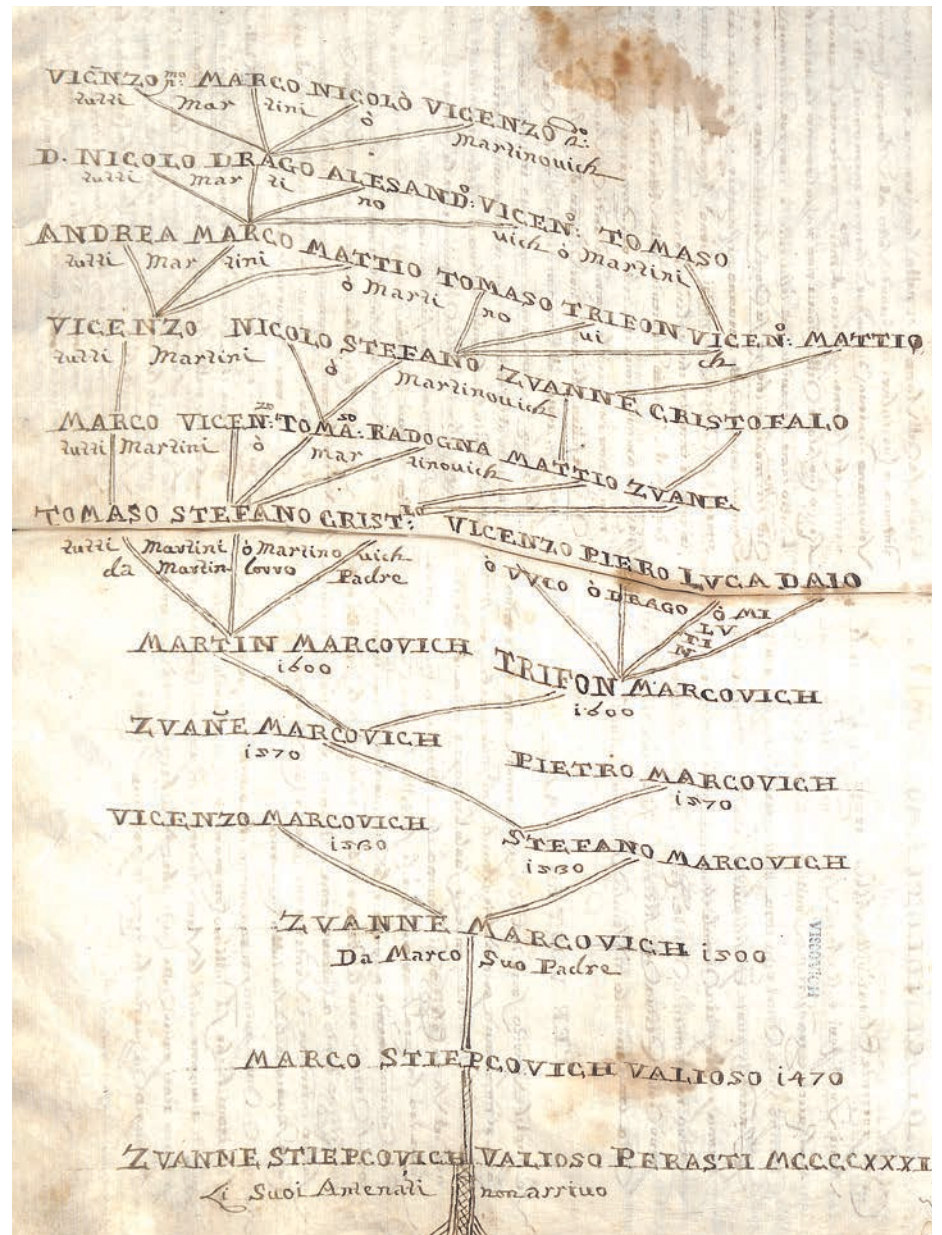 VICÑZO mo n: MARCO NICOLÒ VICENZO Do n:
tutti Mar tini ò Martinovich
D. NICOLO DRAGO ALESAND:o VICEN:o TOMASO
tutti Mar ti no vich ò Martini
ANDREA MARCO MATTIO TOMASO TRIFON VICEN:o MATTIO
tutti Mar tini ò Marti no vi ch
VICENZO NICOLO STEFANO ZVANNE CRISTOFALO
tutti Martini ò Martinovich
MARCO VICEN:zo TOMA:so RADOGNA MATTIO ZVANE
tutti Martini ò mar tinovich
TOMASO STEFANO CRIST:LO VICENZO PIERO LUCA DAIO
tutti Martini ò Martino vich ò VVCO ò DRAGO ò MI
da Martin Lovvo Padre LV
TI
N
MARTIN MARCOVICH TRIFON MARCOVICH
i600 i600
ZVAÑE MARCOVICH PIETRO MARCOVICH
i570 i570
VICENZO MARCOVICH STEFANO MARCOVICH
i530 i530
ZVANNE MARCOVICH i500
Da Marco Suo Padre
VISCOVICH
MARCO STIEPCOVICH VALIOSO i470
ZVANNE STIEPCOVICH VALIOSO PERASTI MCCCCXXXI
Li Suoi Antenati non arrivo